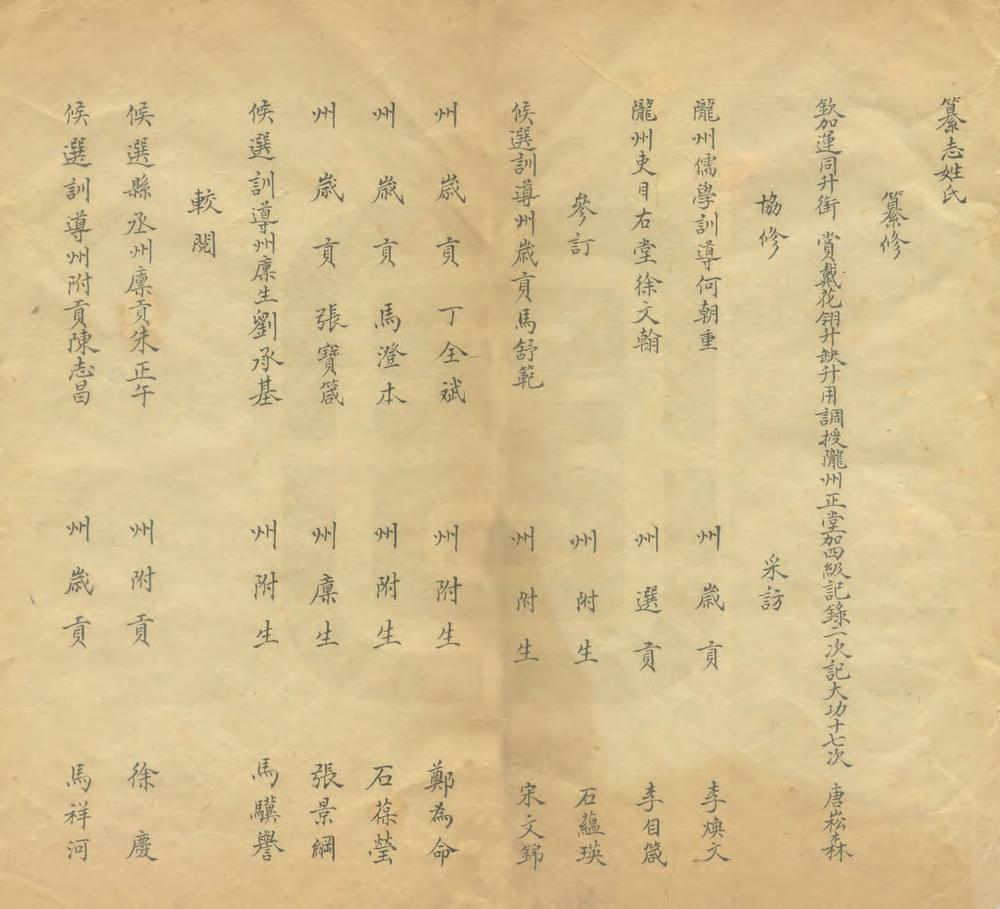 纂志姓氏
纂修
欽加運同升銜　賞戴花翎升缺升用調授隴州正堂加四級記錄二次記大功十七次　唐崧森
協修
采訪
隴州儒學訓導何朝重
州歲貢　李煥文
隴州吏目右堂徐文翰
州選貢　李自箴
參訂
州附生　石蘊瑛
候選訓導州歲貢馬舒範
州附生　宋文錦
州歲貢　丁全斌
州附生　鄭為命
州歲貢　馬澄本
州附生　石葆瑩
州歲貢　張寶箴
州廩生　張景綱
候選訓導州廩生劉承基
州附生　馬驥譽
較閱
候選縣丞州廩貢朱正午
州附貢　徐慶
候選訓導州附貢陳志昌
州歲貢　馬祥河